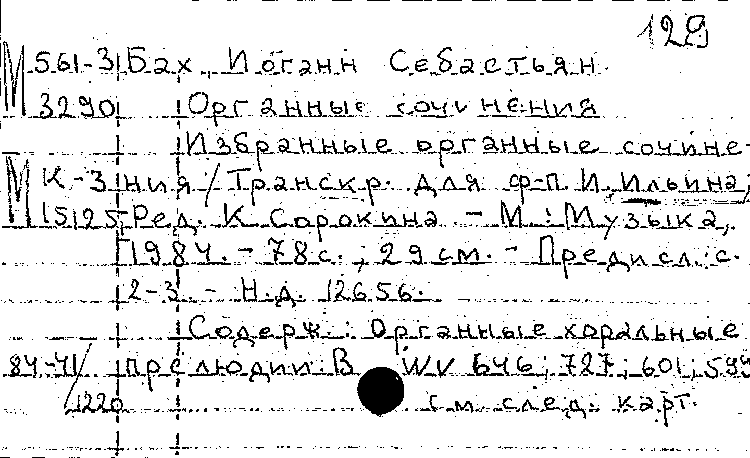 129
М 561-3 Бах, Иоганн Себастьян.
3290 Органные сочинения
Избранные органные сочине-
М К-3 ния / Транскр. для ф-п. И. Ильина;
15125 Ред. К. Сорокина. - М.: Музыка,
1984. - 78 с.; 29 см. - Предисл.: с.
2-3. - Н.д. 12656.
Содерж.: Органные хоральные
84-41/ прелюдии: BWV 646; 727; 601; 599
1220 см. след. карт.